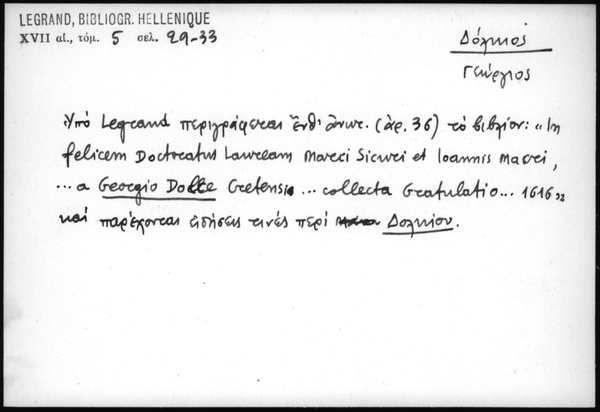 LEGRAND, BIBLIOGR. HELLENIQUE
XVII αἰ., τόμ. 5 σελ. 29-33
Δόλκιος
Γεώργιος
Ὑπό Legrand περιγράφεται ἔνθ' ἀνωτ. (ἀρ. 36) τό βιβλίον: "In
felicem Doctoratus Lauream Marci Sicuri et Ioannis Macri,
... a Georgio Dolce Cretensi ... collecta Gratulatio... 1616"
καί παρέχονται εἰδήσεις τινές περί Δολκίου.